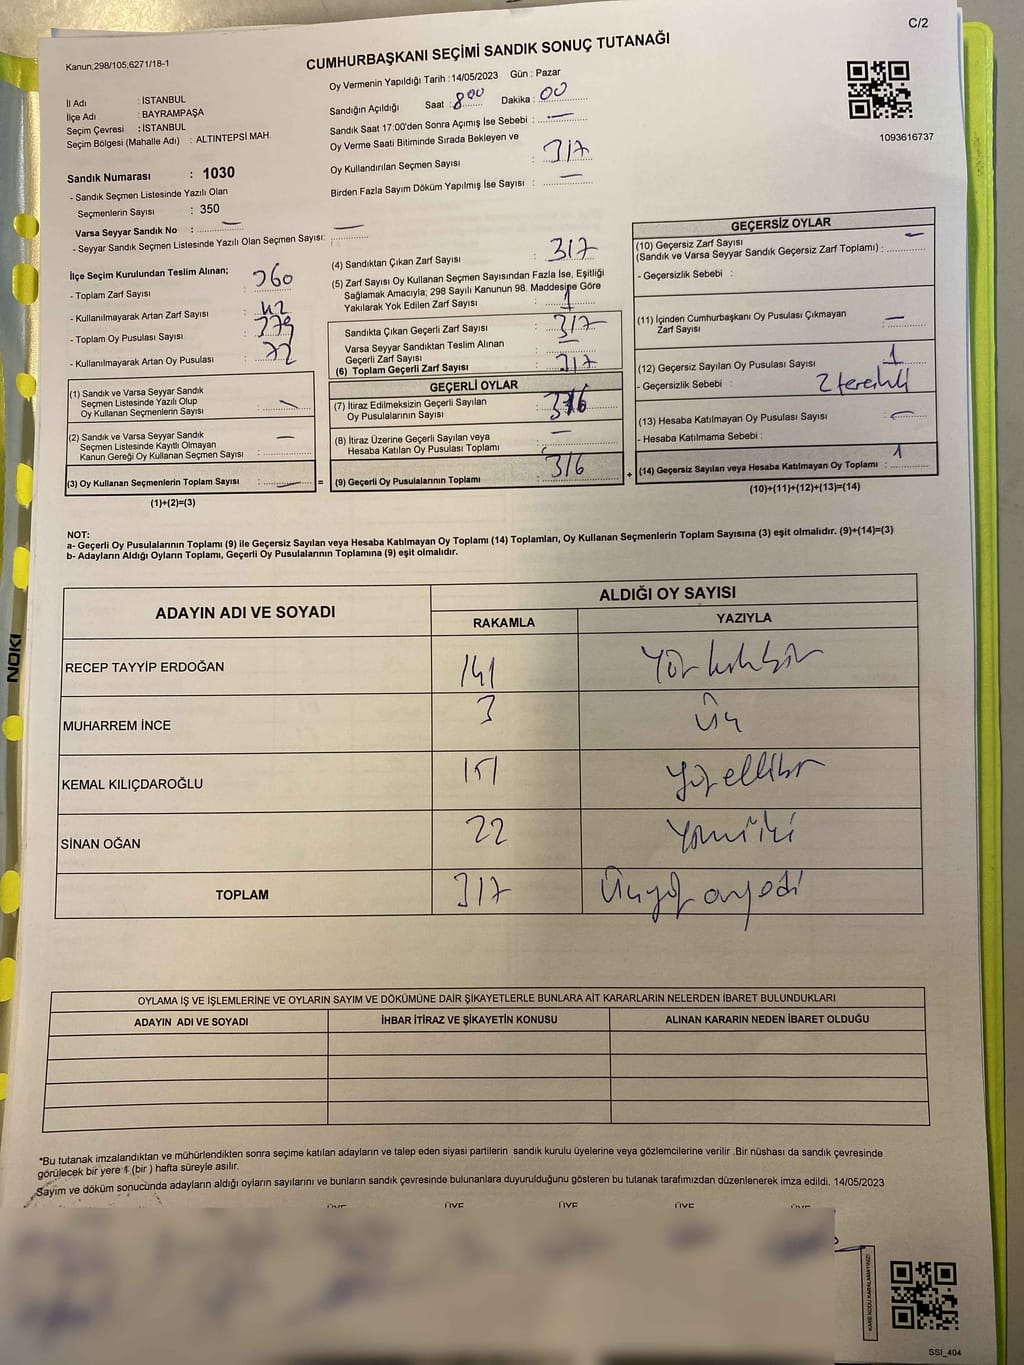 C/2
Kanun;298/105,6271/18-1
CUMHURBAŞKANI SEÇİMİ SANDIK SONUÇ TUTANAĞI
İl Adı : İSTANBUL
İlçe Adı : BAYRAMPAŞA
Seçim Çevresi : İSTANBUL
Seçim Bölgesi (Mahalle Adı) : ALTINTEPSİ MAH.
Sandık Numarası : 1030
- Sandık Seçmen Listesinde Yazılı Olan
Seçmenlerin Sayısı : 350
Varsa Seyyar Sandık No : —
- Seyyar Sandık Seçmen Listesinde Yazılı Olan Seçmen Sayısı: —
Oy Vermenin Yapıldığı Tarih : 14/05/2023 Gün : Pazar
Sandığın Açıldığı Saat : 8 00 Dakika : 00
Sandık Saat 17:00'den Sonra Açımış İse Sebebi : —
Oy Verme Saati Bitiminde Sırada Bekleyen ve
Oy Kullandırılan Seçmen Sayısı : 317
Birden Fazla Sayım Döküm Yapılmış İse Sayısı : —
1093616737
İlçe Seçim Kurulundan Teslim Alınan;
- Toplam Zarf Sayısı : 360
- Kullanılmayarak Artan Zarf Sayısı : 42
- Toplam Oy Pusulası Sayısı : 379
- Kullanılmayarak Artan Oy Pusulası : 72
(1) Sandık ve Varsa Seyyar Sandık
Seçmen Listesinde Yazılı Olup
Oy Kullanan Seçmenlerin Sayısı : —
(2) Sandık ve Varsa Seyyar Sandık
Seçmen Listesinde Kayıtlı Olmayan
Kanun Gereği Oy Kullanan Seçmen Sayısı : —
(3) Oy Kullanan Seçmenlerin Toplam Sayısı : — =
(1)+(2)=(3)
(4) Sandıktan Çıkan Zarf Sayısı : 317
(5) Zarf Sayısı Oy Kullanan Seçmen Sayısından Fazla İse, Eşitliği
Sağlamak Amacıyla; 298 Sayılı Kanunun 98. Maddesine Göre
Yakılarak Yok Edilen Zarf Sayısı : 1
Sandıkta Çıkan Geçerli Zarf Sayısı : 317
Varsa Seyyar Sandıktan Teslim Alınan
Geçerli Zarf Sayısı : —
(6) Toplam Geçerli Zarf Sayısı : 317
GEÇERLİ OYLAR
(7) İtiraz Edilmeksizin Geçerli Sayılan
Oy Pusulalarının Sayısı : 316
(8) İtiraz Üzerine Geçerli Sayılan veya
Hesaba Katılan Oy Pusulası Toplamı : —
(9) Geçerli Oy Pusulalarının Toplamı : 316 +
GEÇERSİZ OYLAR
(10) Geçersiz Zarf Sayısı
(Sandık ve Varsa Seyyar Sandık Geçersiz Zarf Toplamı) : —
- Geçersizlik Sebebi :
(11) İçinden Cumhurbaşkanı Oy Pusulası Çıkmayan
Zarf Sayısı : —
(12) Geçersiz Sayılan Oy Pusulası Sayısı : 1
- Geçersizlik Sebebi : 2 tercihli
(13) Hesaba Katılmayan Oy Pusulası Sayısı : —
- Hesaba Katılmama Sebebi :
(14) Geçersiz Sayılan veya Hesaba Katılmayan Oy Toplamı : 1
(10)+(11)+(12)+(13)=(14)
NOT:
a- Geçerli Oy Pusulalarının Toplamı (9) ile Geçersiz Sayılan veya Hesaba Katılmayan Oy Toplamı (14) Toplamları, Oy Kullanan Seçmenlerin Toplam Sayısına (3) eşit olmalıdır. (9)+(14)=(3)
b- Adayların Aldığı Oyların Toplamı, Geçerli Oy Pusulalarının Toplamına (9) eşit olmalıdır.
ADAYIN ADI VE SOYADI
ALDIĞI OY SAYISI
RAKAMLA YAZIYLA
RECEP TAYYİP ERDOĞAN 141 Yüz kırkbir
MUHARREM İNCE 3 Üç
KEMAL KILIÇDAROĞLU 151 Yüz ellibir
SİNAN OĞAN 22 Yirmi iki
TOPLAM 317 Üçyüz onyedi
OYLAMA İŞ VE İŞLEMLERİNE VE OYLARIN SAYIM VE DÖKÜMÜNE DAİR ŞİKAYETLERLE BUNLARA AİT KARARLARIN NELERDEN İBARET BULUNDUKLARI
ADAYIN ADI VE SOYADI İHBAR İTİRAZ VE ŞİKAYETİN KONUSU ALINAN KARARIN NEDEN İBARET OLDUĞU
*Bu tutanak imzalandıktan ve mühürlendikten sonra seçime katılan adayların ve talep eden siyasi partilerin sandık kurulu üyelerine veya gözlemcilerine verilir .Bir nüshası da sandık çevresinde
görülecek bir yere 1 (bir ) hafta süreyle asılır.
Sayım ve döküm sonucunda adayların aldığı oyların sayılarını ve bunların sandık çevresinde bulunanlara duyurulduğunu gösteren bu tutanak tarafımızdan düzenlenerek imza edildi. 14/05/2023
ÜYE ÜYE ÜYE ÜYE ÜYE
KARE KODU KARALAMAYINIZ!
SSI_404
NOKI